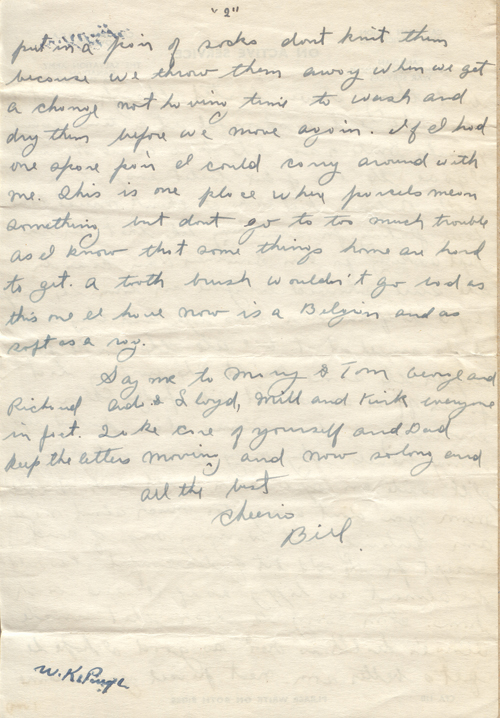 "2"
put in a pair of socks dont knit them
because we throw them away when we get
a change not having time to wash and
dry them before we move again. If I had
one spare pair I could carry around with
me. This is one place where parcels mean
something but dont go to too much trouble
as I know that some things home are hard
to get. A tooth brush wouldn't go bad as
this one I have now is a Belgian and as
soft as a rag.
Say me to Mary & Tom George and
Richard Ada & Lloyd, Mill and Kirk everyone
in fact. Take care of yourself and Dad
keep the letters moving and now so long and
all the best
Cheerio
Bill.